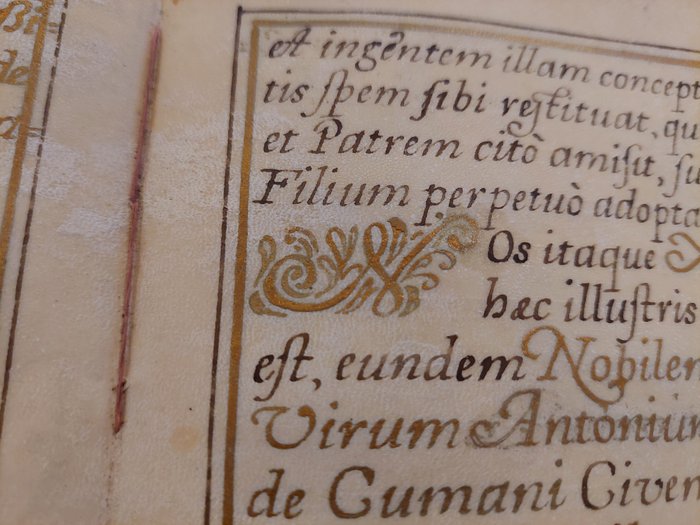 Bi=
de
a=
et ingentem illam concept
tis ſpem ſibi reſtituat, qu
et Patrem citò amiſit, ſu
Filium perpetuò adopta
NOs itaque
hæc illuſtris
eſt, eundem Nobilem
Virum Antonium
de Cumani Civem